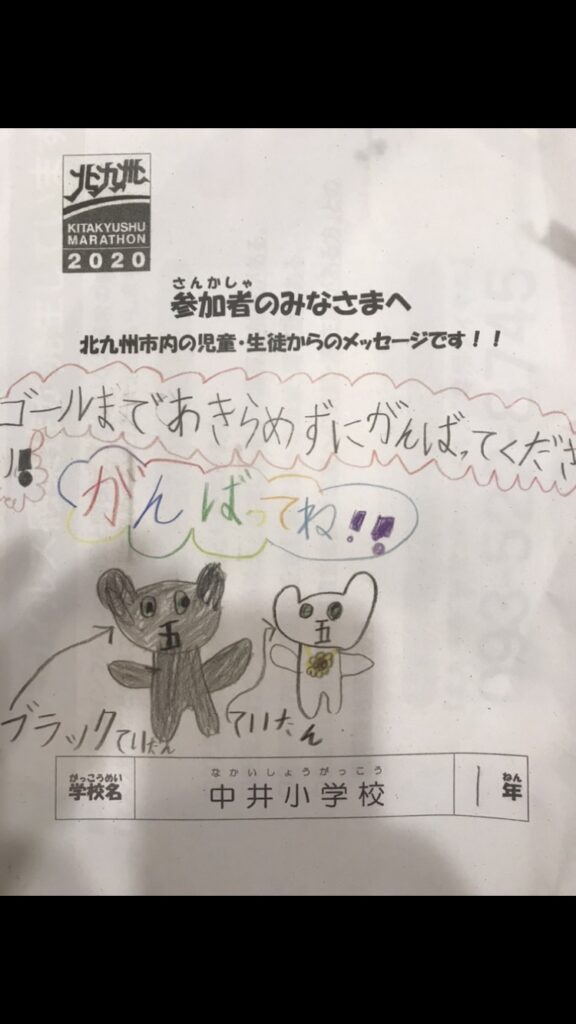 北九州
KITAKYUSHU
MARATHON
2020
さんかしゃ
参加者のみなさまへ
北九州市内の児童・生徒からのメッセージです！！
ゴールまであきらめずにがんばってくださ
い!!
がんばってね!!
五
五
ブラックていたん
ていたん
がっこうめい
学校名
なかいしょうがっこう
中井小学校
1
ねん
年